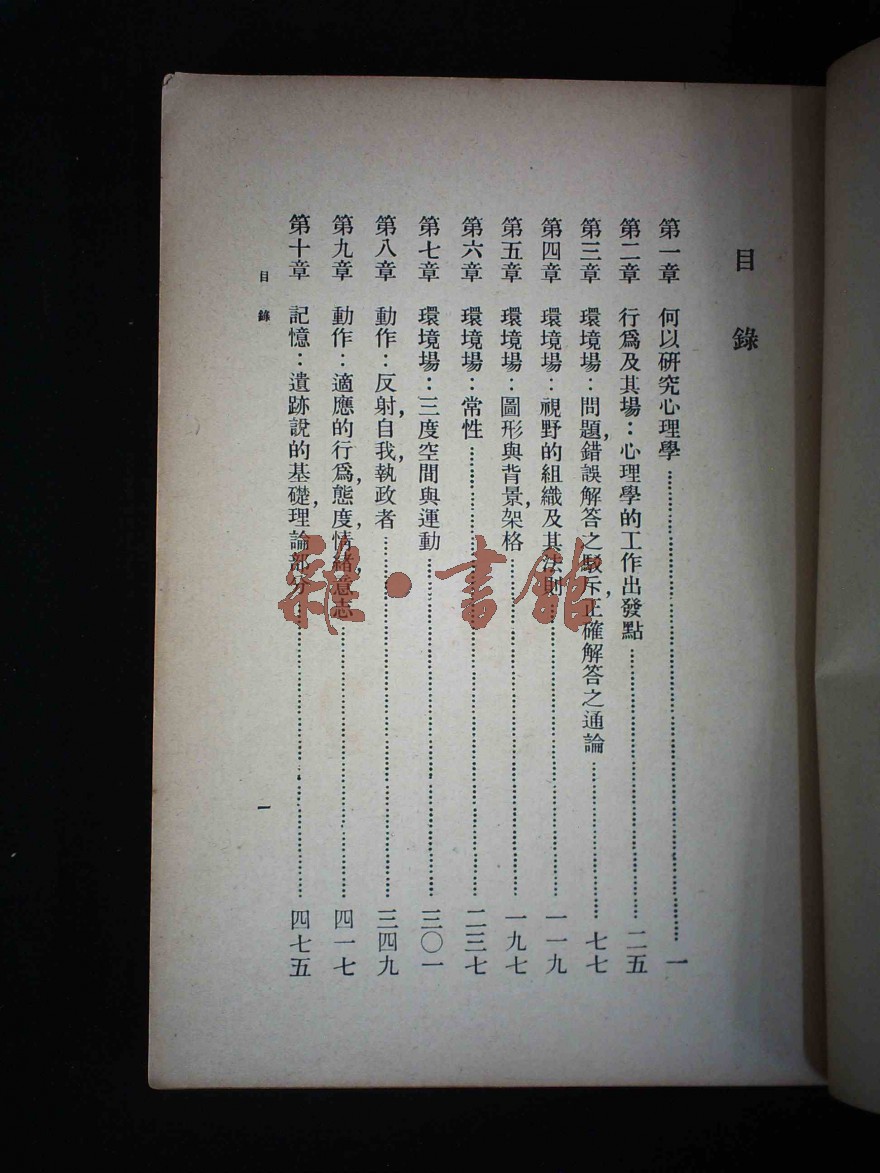 目錄
第一章 何以研究心理學……一
第二章 行爲及其場：心理學的工作出發點……二五
第三章 環境場：問題，錯誤解答之駁斥，正確解答之通論……七七
第四章 環境場：視野的組織及其法則……一一九
第五章 環境場：圖形與背景，架格……一九七
第六章 環境場：常性……二三七
第七章 環境場：三度空間與運動……三〇一
第八章 動作：反射，自我，執政者……三四九
第九章 動作：適應的行爲，態度，情緒，意志……四一七
第十章 記憶：遺跡說的基礎，理論部分……四七五
目錄
一
雜·書館